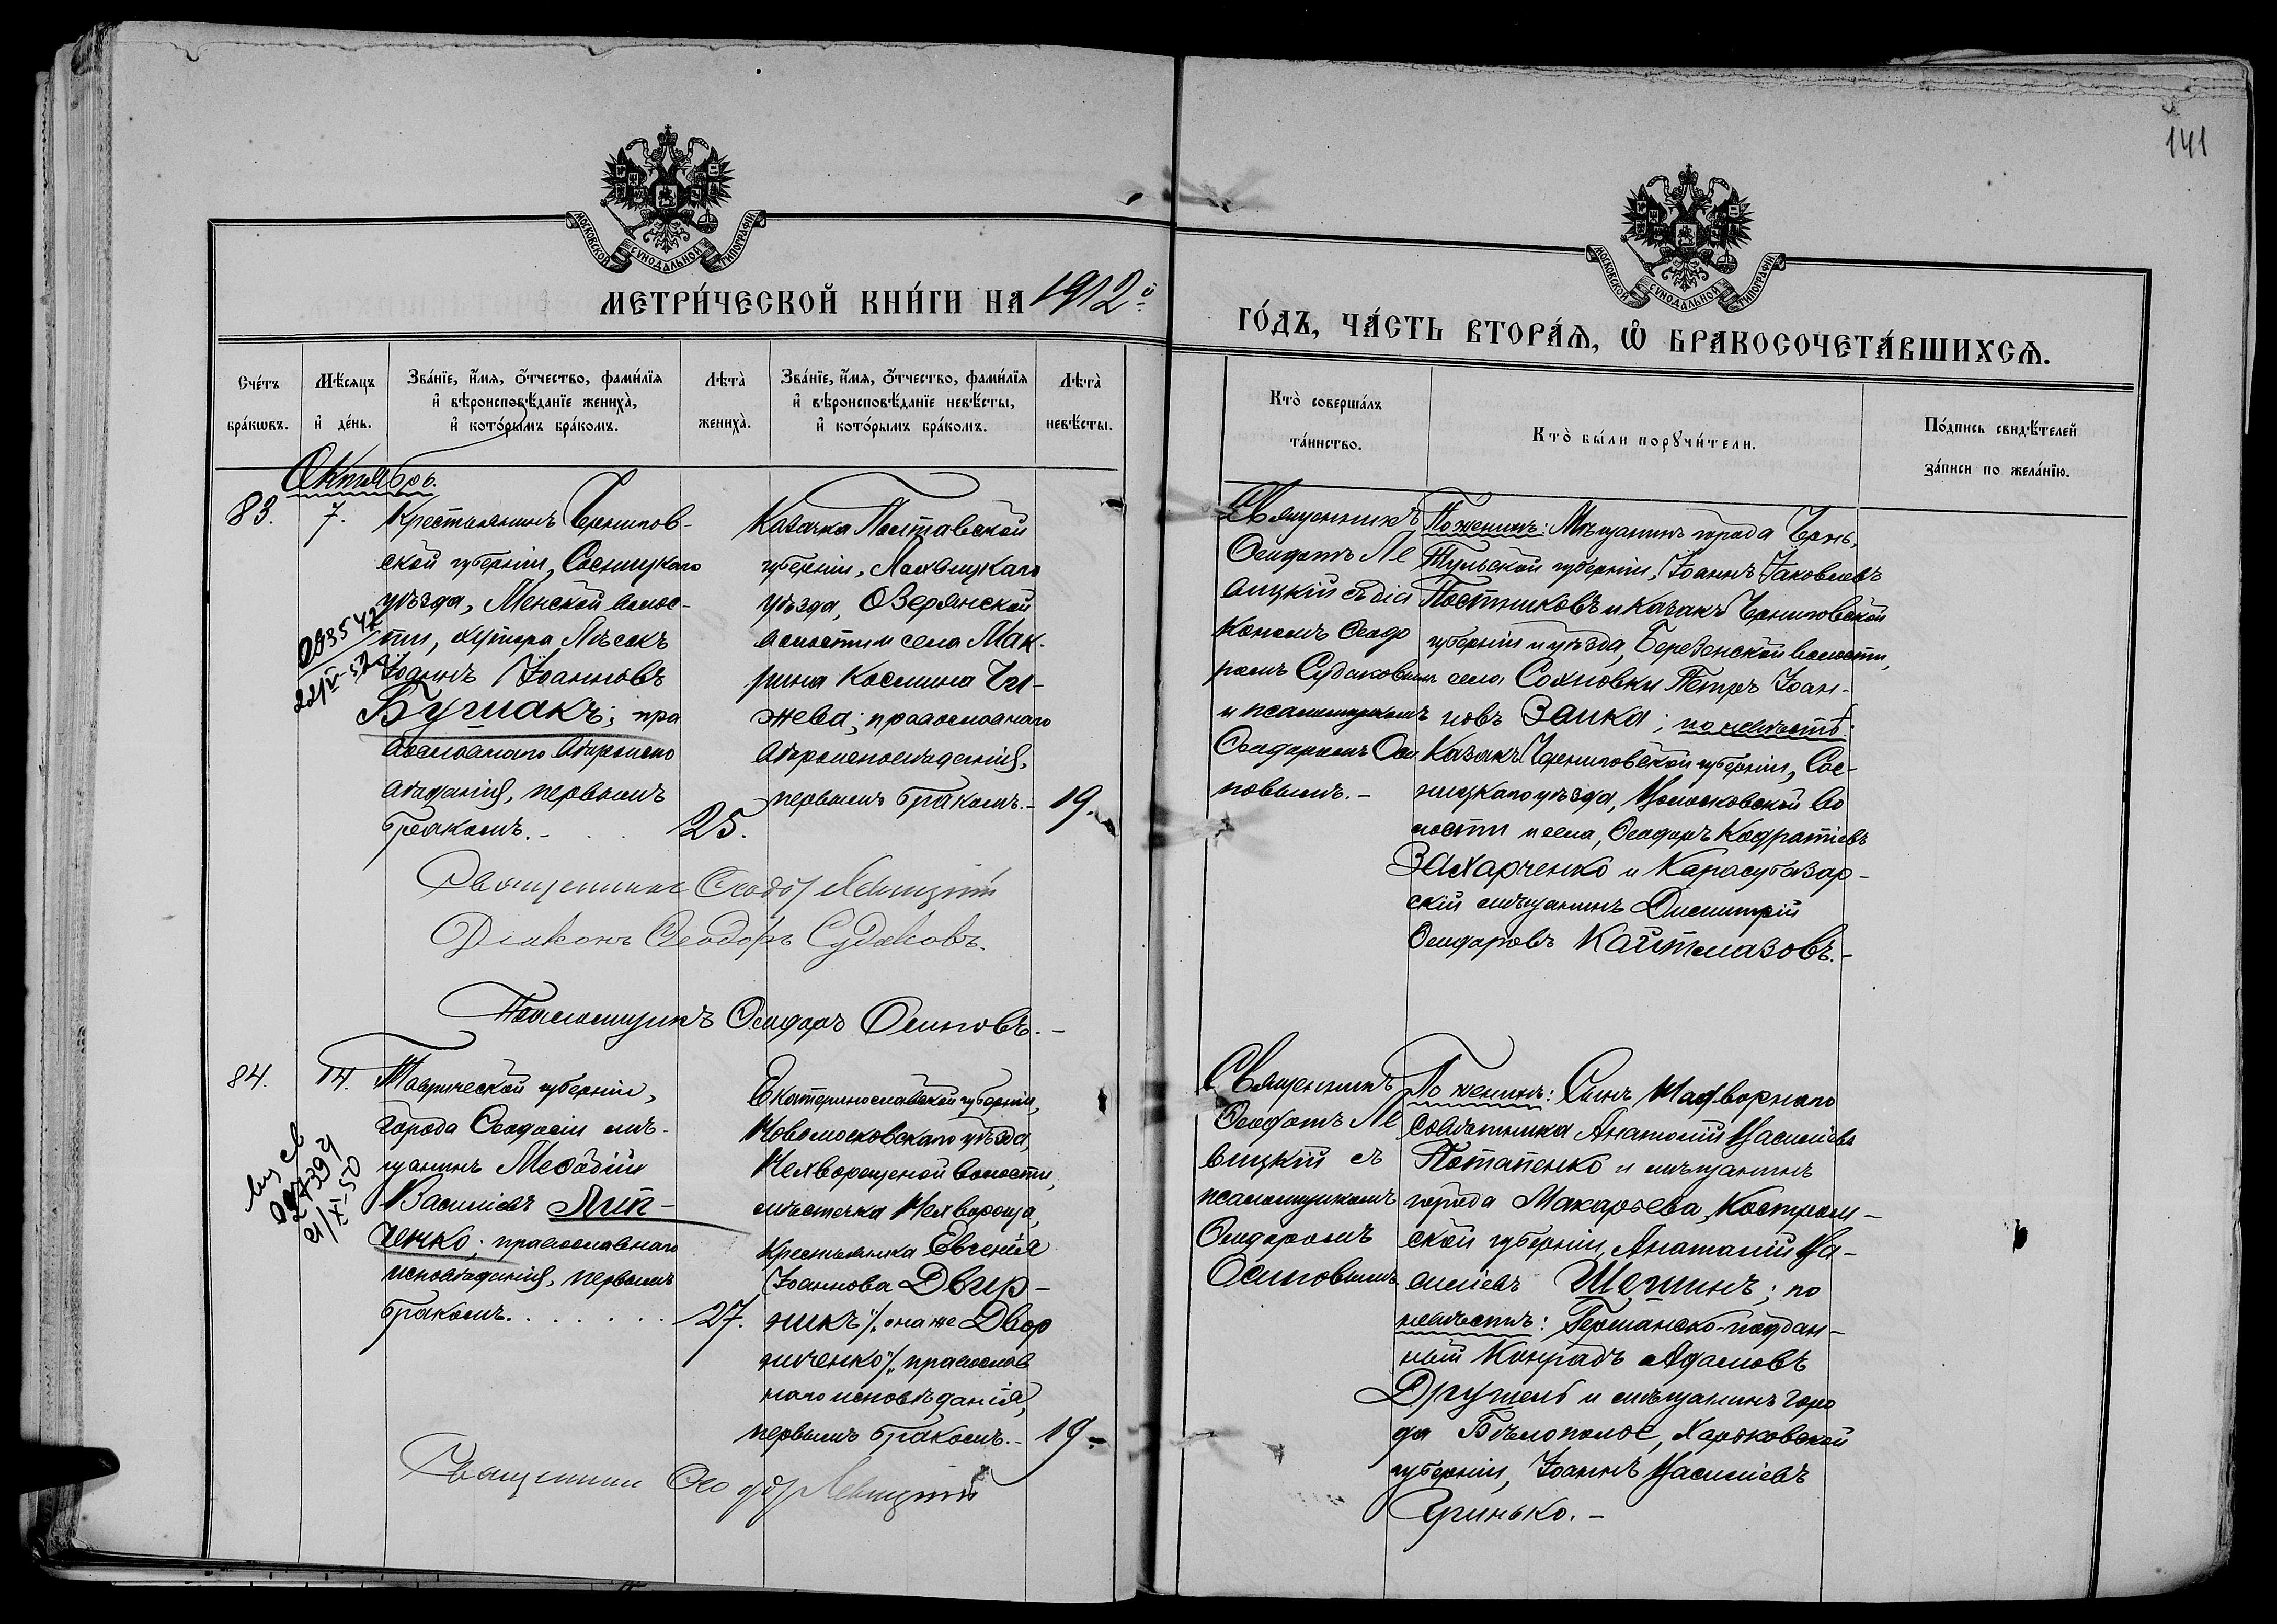 141
МОСКОВСКОЙ СУНОДАЛЬНОЙ ТИПОГРАФІИ
МОСКОВСКОЙ СУНОДАЛЬНОЙ ТИПОГРАФІИ
МЕТРИ́ЧЕСКОЙ КНИ́ГИ НА 1912й
ГО́ДЪ, ЧА́СТЬ ВТОРА́Ѧ, Ѽ БРАКОСОЧЕТА́ВШИХСѦ.
Сче́тъ бра́кωвъ.
Мѣ́сяцъ и де́нь.
Зва́нїе, и́мя, о́тчество, фами́лїя
и вѣроисповѣ́данїе жениха̀,
и кото́рымъ бра́комъ.
Лѣта̀ жениха̀.
Зва́нїе, и́мя, о́тчество, фами́лїя
и вѣроисповѣ́данїе невѣ́сты,
и кото́рымъ бра́комъ.
Лѣта̀ невѣ́сты.
Кто̀ соверша́лъ
та́инство.
Кто̀ бы́ли порꙋчи́тели.
По́дпись свидѣ́телей
за́писи по жела́нїю.
Октябрь.
83.
7.
Крестьянинъ Чернигов-
ской губерніи, Сосницкаго
уѣзда, Менской волос-
ти, хутора Лѣсокъ
Іоаннъ Іоанновъ
Бушакъ; пра
вославнаго вѣроиспо
вѣданія, первымъ
бракомъ. -
25.
Казачка Полтавской
губерніи, Лохвицкаго
уѣзда, Озерянской
волости и села Мак-
рина Космина Чи-
жева; православнаго
вѣроисповѣданія,
первымъ бракомъ. -
19.
Священникъ
Ѳеодотъ Ле
вицкій съ діа
кономъ Ѳеодо
ромъ Судаковымъ
и псаломщикомъ
Ѳеодоромъ Оси
повымъ. -
По женихѣ: Мѣщанинъ города Чернь,
Тульской губерніи, Іоаннъ Іаковлевъ
Постниковъ и казакъ Черниговской
губерніи и уѣзда, Березенской волости,
села Сохновки Петръ Іоан-
новъ Заика; по невѣстѣ:
Казакъ Черниговской губерніи, Сос-
ницкаго уѣзда, Волосковской во
лости и села, Ѳеодоръ Кодратіевъ
Захарченко и Карасубазар-
скій мѣщанинъ Димитрій
Ѳеодоровъ Кайтмазовъ. -
Священникъ Ѳеодотъ Левицкій
Діаконъ Ѳеодоръ Судаковъ.
Псаломщикъ Ѳеодоръ Осиповъ. -
84.
14.
Таврической губерніи,
города Ѳеодосіи мѣ-
щанинъ Меѳодій
Василіевъ Лип-
ченко; православнаго
исповѣданія, первымъ
бракомъ. . . . . . .
27.
Екатеринославской губерніи,
Новомосковскаго уѣзда,
Нехворощеной волости,
мѣстечка Нехвороща,
крестьянка Евгенія
Іоаннова Двир-
никъ /. она же Двор
ниченко /. православ
наго исповѣданія,
первымъ бракомъ. -
19 -
Священникъ
Ѳеодотъ Ле
вицкій съ
псаломщикомъ
Ѳеодоромъ
Осиповымъ.
По женихѣ: Сынъ Надворнаго
совѣтника Анатолій Василіевъ
Потапенко и мѣщанинъ
города Макарьева, Костром-
ской губерніи, Анатолій Ва-
силіевъ Шершинъ; по
невѣстѣ: Германско-поддан-
ный Конрадъ Адамовъ
Друшель и мѣщанинъ горо
да Бѣлополое, Харьковской
губерніи, Іоаннъ Василіевъ
Гринько. -
Священникъ Ѳеодотъ Левицкій